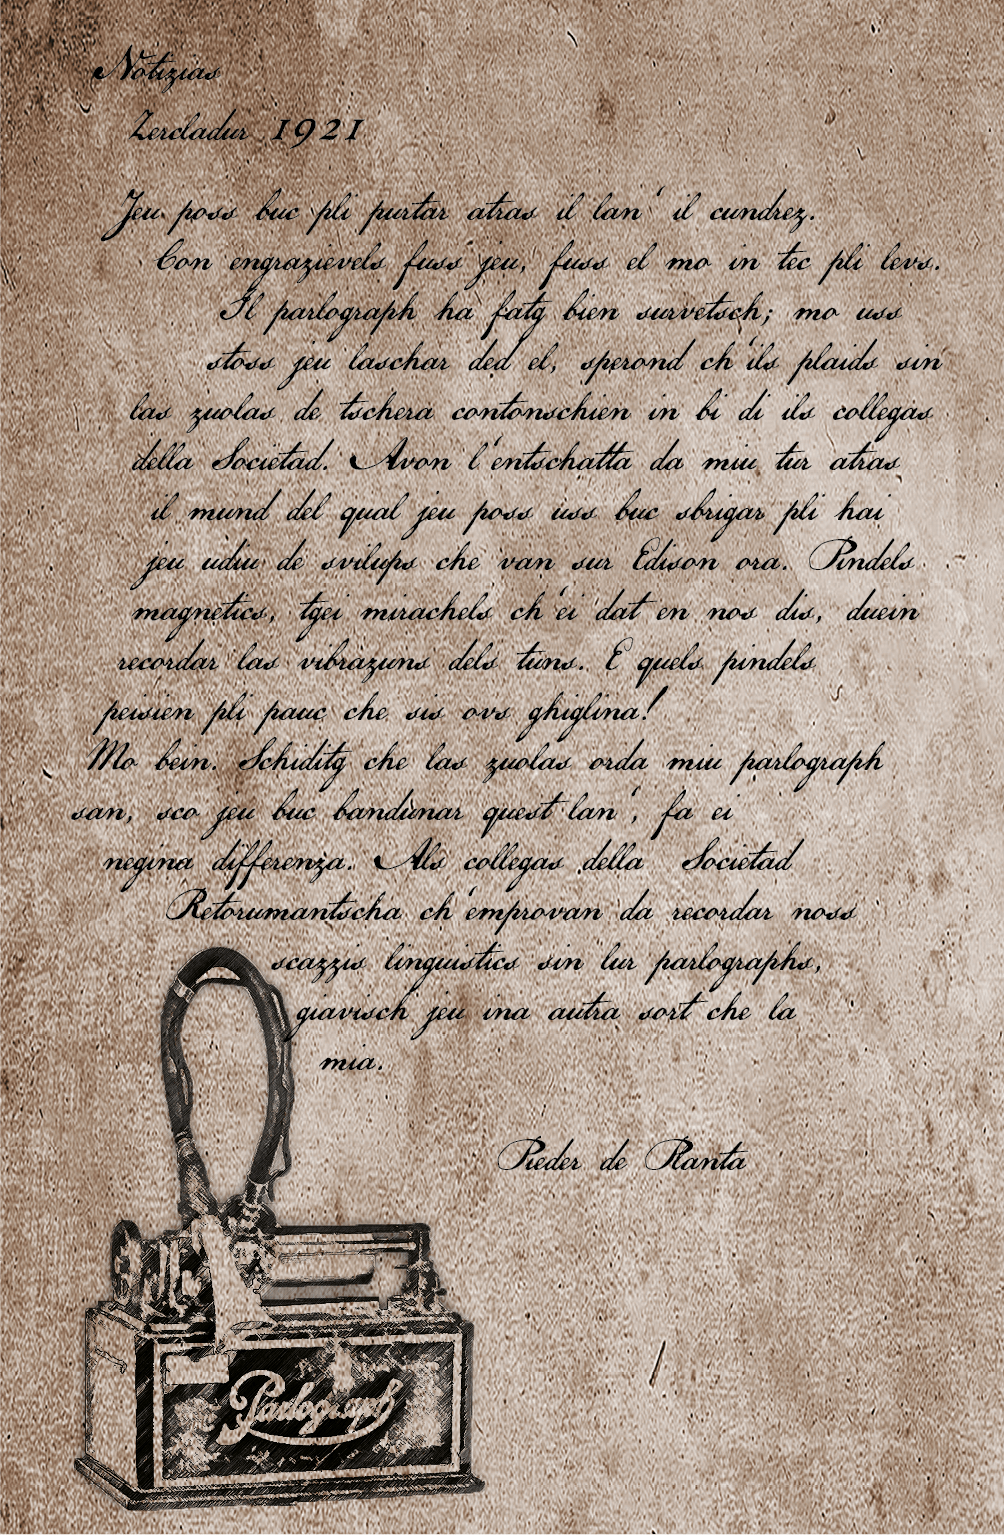 Notizias
Zercladur 1921
Jeu poss buc pli purtar atras il lan' il cundrez.
Con engrazievels fuss jeu, fuss el mo in tec pli levs.
Il parlograph ha fatg bien survetsch; mo uss
stoss jeu laschar ded el, sperond ch'ils plaids sin
las zuolas de tschera contonschien in bi di ils collegas
della Societad. Avon l'entschatta da miu tur atras
il mund del qual jeu poss uss buc sbrigar pli hai
jeu udiu de svilups che van sur Edison ora. Pindels
magnetics, tgei mirachels ch'ei dat en nos dis, duein
recordar las vibrazuns dels tuns. E quels pindels
peisien pli pauc che sis ovs ghiglina!
Mo bein. Schiditg che las zuolas orda miu parlograph
san, sco jeu buc bandunar quest lan', fa ei
negina differenza. Als collegas della Societad
Retorumantscha ch'emprovan da recordar noss
scazzis linguistics sin lur parlographs,
giavisch jeu ina autra sort che la
mia.
Pieder de Planta
Parlograph